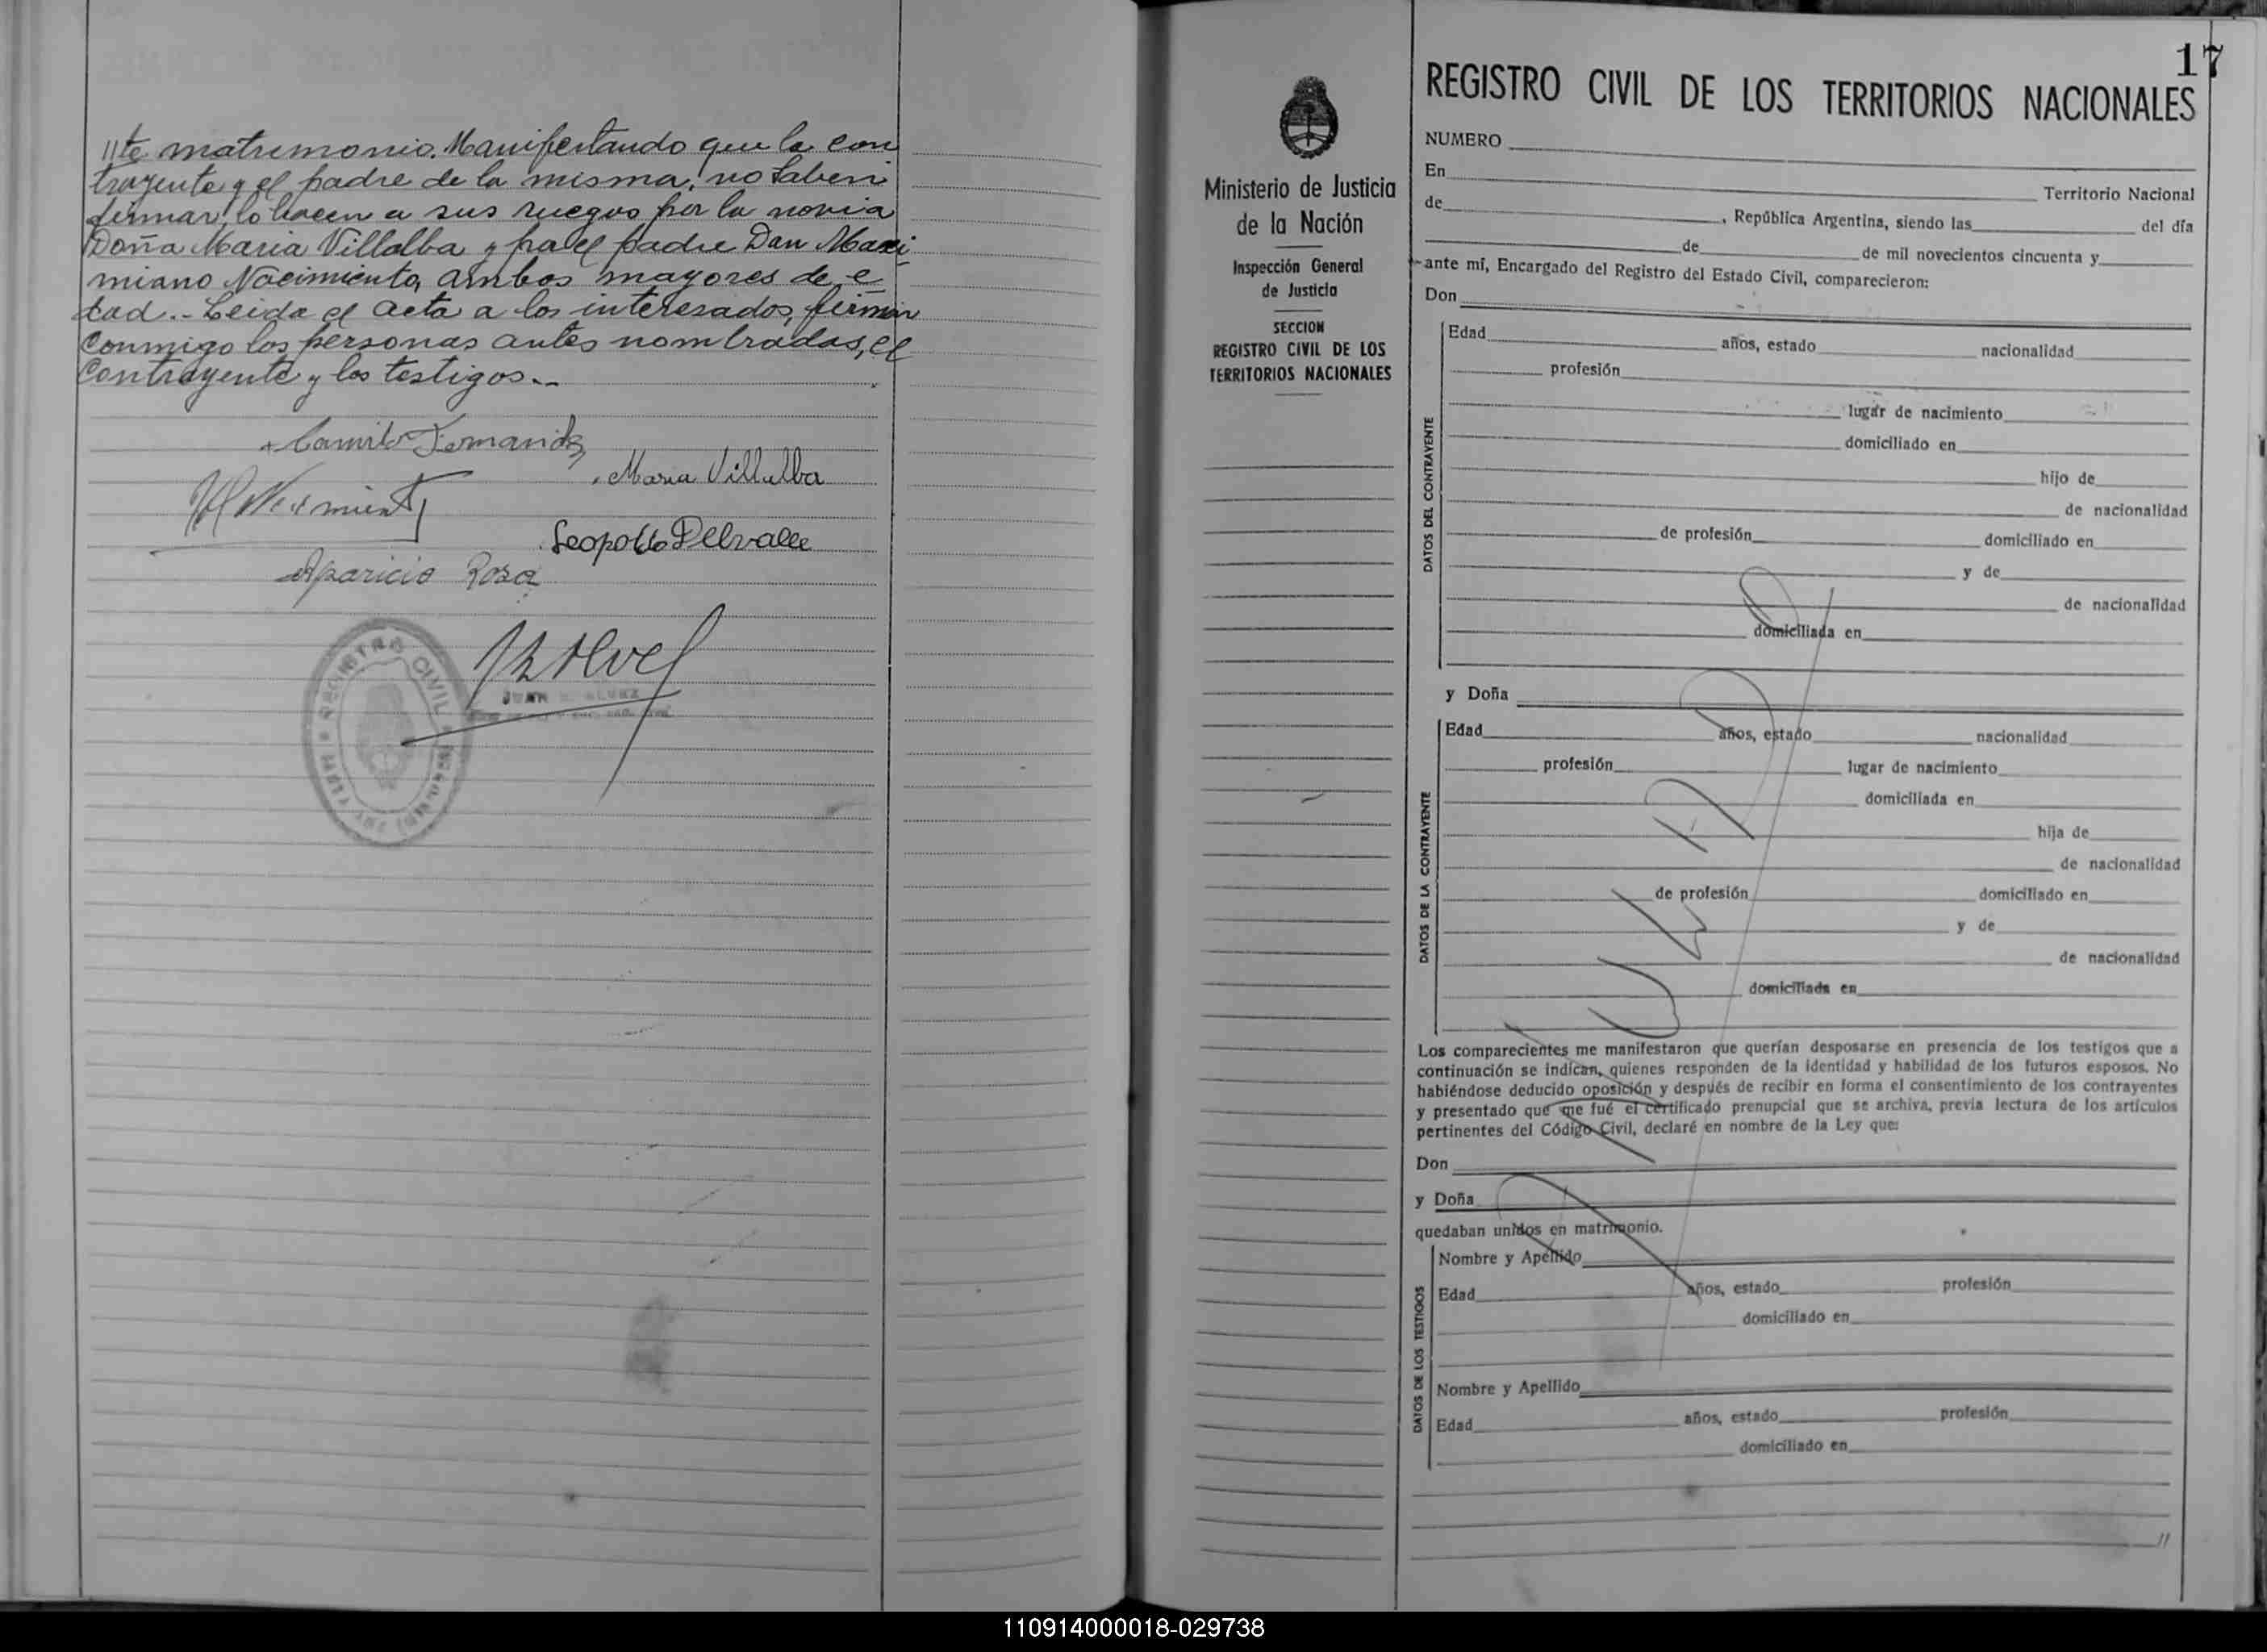 //te matrimonio. Manifestando que la con
trayente y el padre de la misma, no saben
firmar, lo hacen a sus ruegos por la novia
Doña Maria Villalba y por el padre Don Maxi
miano Nacimiento, ambos mayores de e
dad.- Leida el acta a los interesados, firman
conmigo las personas antes nombradas, el
contrayente y los testigos.-
Camilo Fernandez
Maria Villalba
Leopoldo Delvalle
Aparicio Rosa
REGISTRO CIVIL
JUAN
17
REGISTRO CIVIL DE LOS TERRITORIOS NACIONALES
Ministerio de Justicia
de la Nación
Inspección General
de Justicia
SECCION
REGISTRO CIVIL DE LOS
TERRITORIOS NACIONALES
NUMERO
En Territorio Nacional
de , República Argentina, siendo las del día
de de mil novecientos cincuenta y
ante mí, Encargado del Registro del Estado Civil, comparecieron:
Don
DATOS DEL CONTRAYENTE
Edad años, estado nacionalidad
profesión
lugar de nacimiento
domiciliado en
hijo de
de nacionalidad
de profesión domiciliado en
y de
de nacionalidad
domiciliada en
y Doña
DATOS DE LA CONTRAYENTE
Edad años, estado nacionalidad
profesión lugar de nacimiento
domiciliada en
hija de
de nacionalidad
de profesión domiciliado en
y de
de nacionalidad
domiciliada en
Los comparecientes me manifestaron que querían desposarse en presencia de los testigos que a
continuación se indican, quienes responden de la identidad y habilidad de los futuros esposos. No
habiéndose deducido oposición y después de recibir en forma el consentimiento de los contrayentes
y presentado que me fué el certificado prenupcial que se archiva, previa lectura de los artículos
pertinentes del Código Civil, declaré en nombre de la Ley que:
Don
y Doña
quedaban unidos en matrimonio.
DATOS DE LOS TESTIGOS
Nombre y Apellido
Edad años, estado profesión
domiciliado en
Nombre y Apellido
Edad años, estado profesión
domiciliado en
//
110914000018-029738